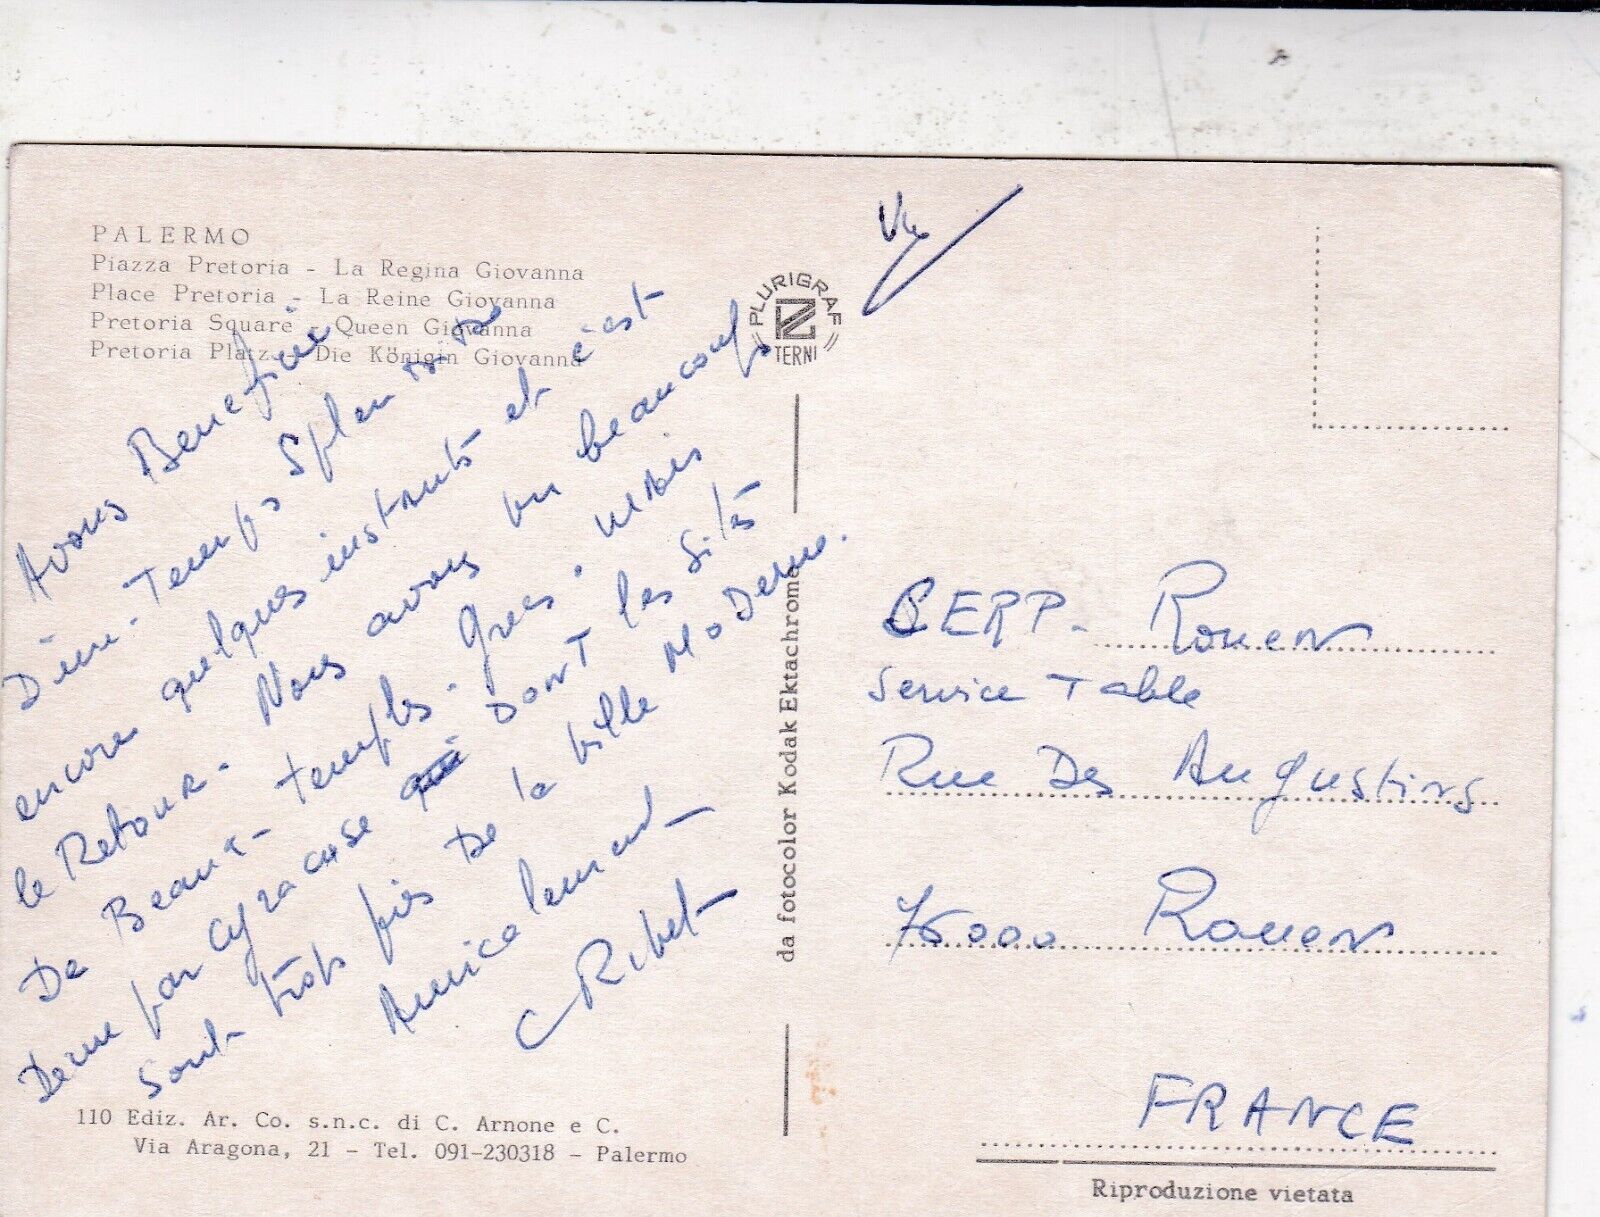 PALERMO
Piazza Pretoria - La Regina Giovanna
Place Pretoria - La Reine Giovanna
Pretoria Square - Queen Giovanna
Pretoria Platz - Die Königin Giovanna
Avons Beneficié
D'un Temps Splendide
encore quelques instants et c'est
le Retour. Nous avons vu beaucoup
De Beaux temples Grecs. mais
Deçu par Cyracuse qui DonT les Sités
Sont trop près De la ville MoDerne.
Amicalement
C Ribet
Vu
PLURIGRAF
TERNI
da fotocolor Kodak Ektachrome
CERP - Rouen
Service Table
Rue Des Augustins
76000 Rouen
FRANCE
110 Ediz. Ar. Co. s.n.c. di C. Arnone e C.
Via Aragona, 21 - Tel. 091-230318 - Palermo
Riproduzione vietata